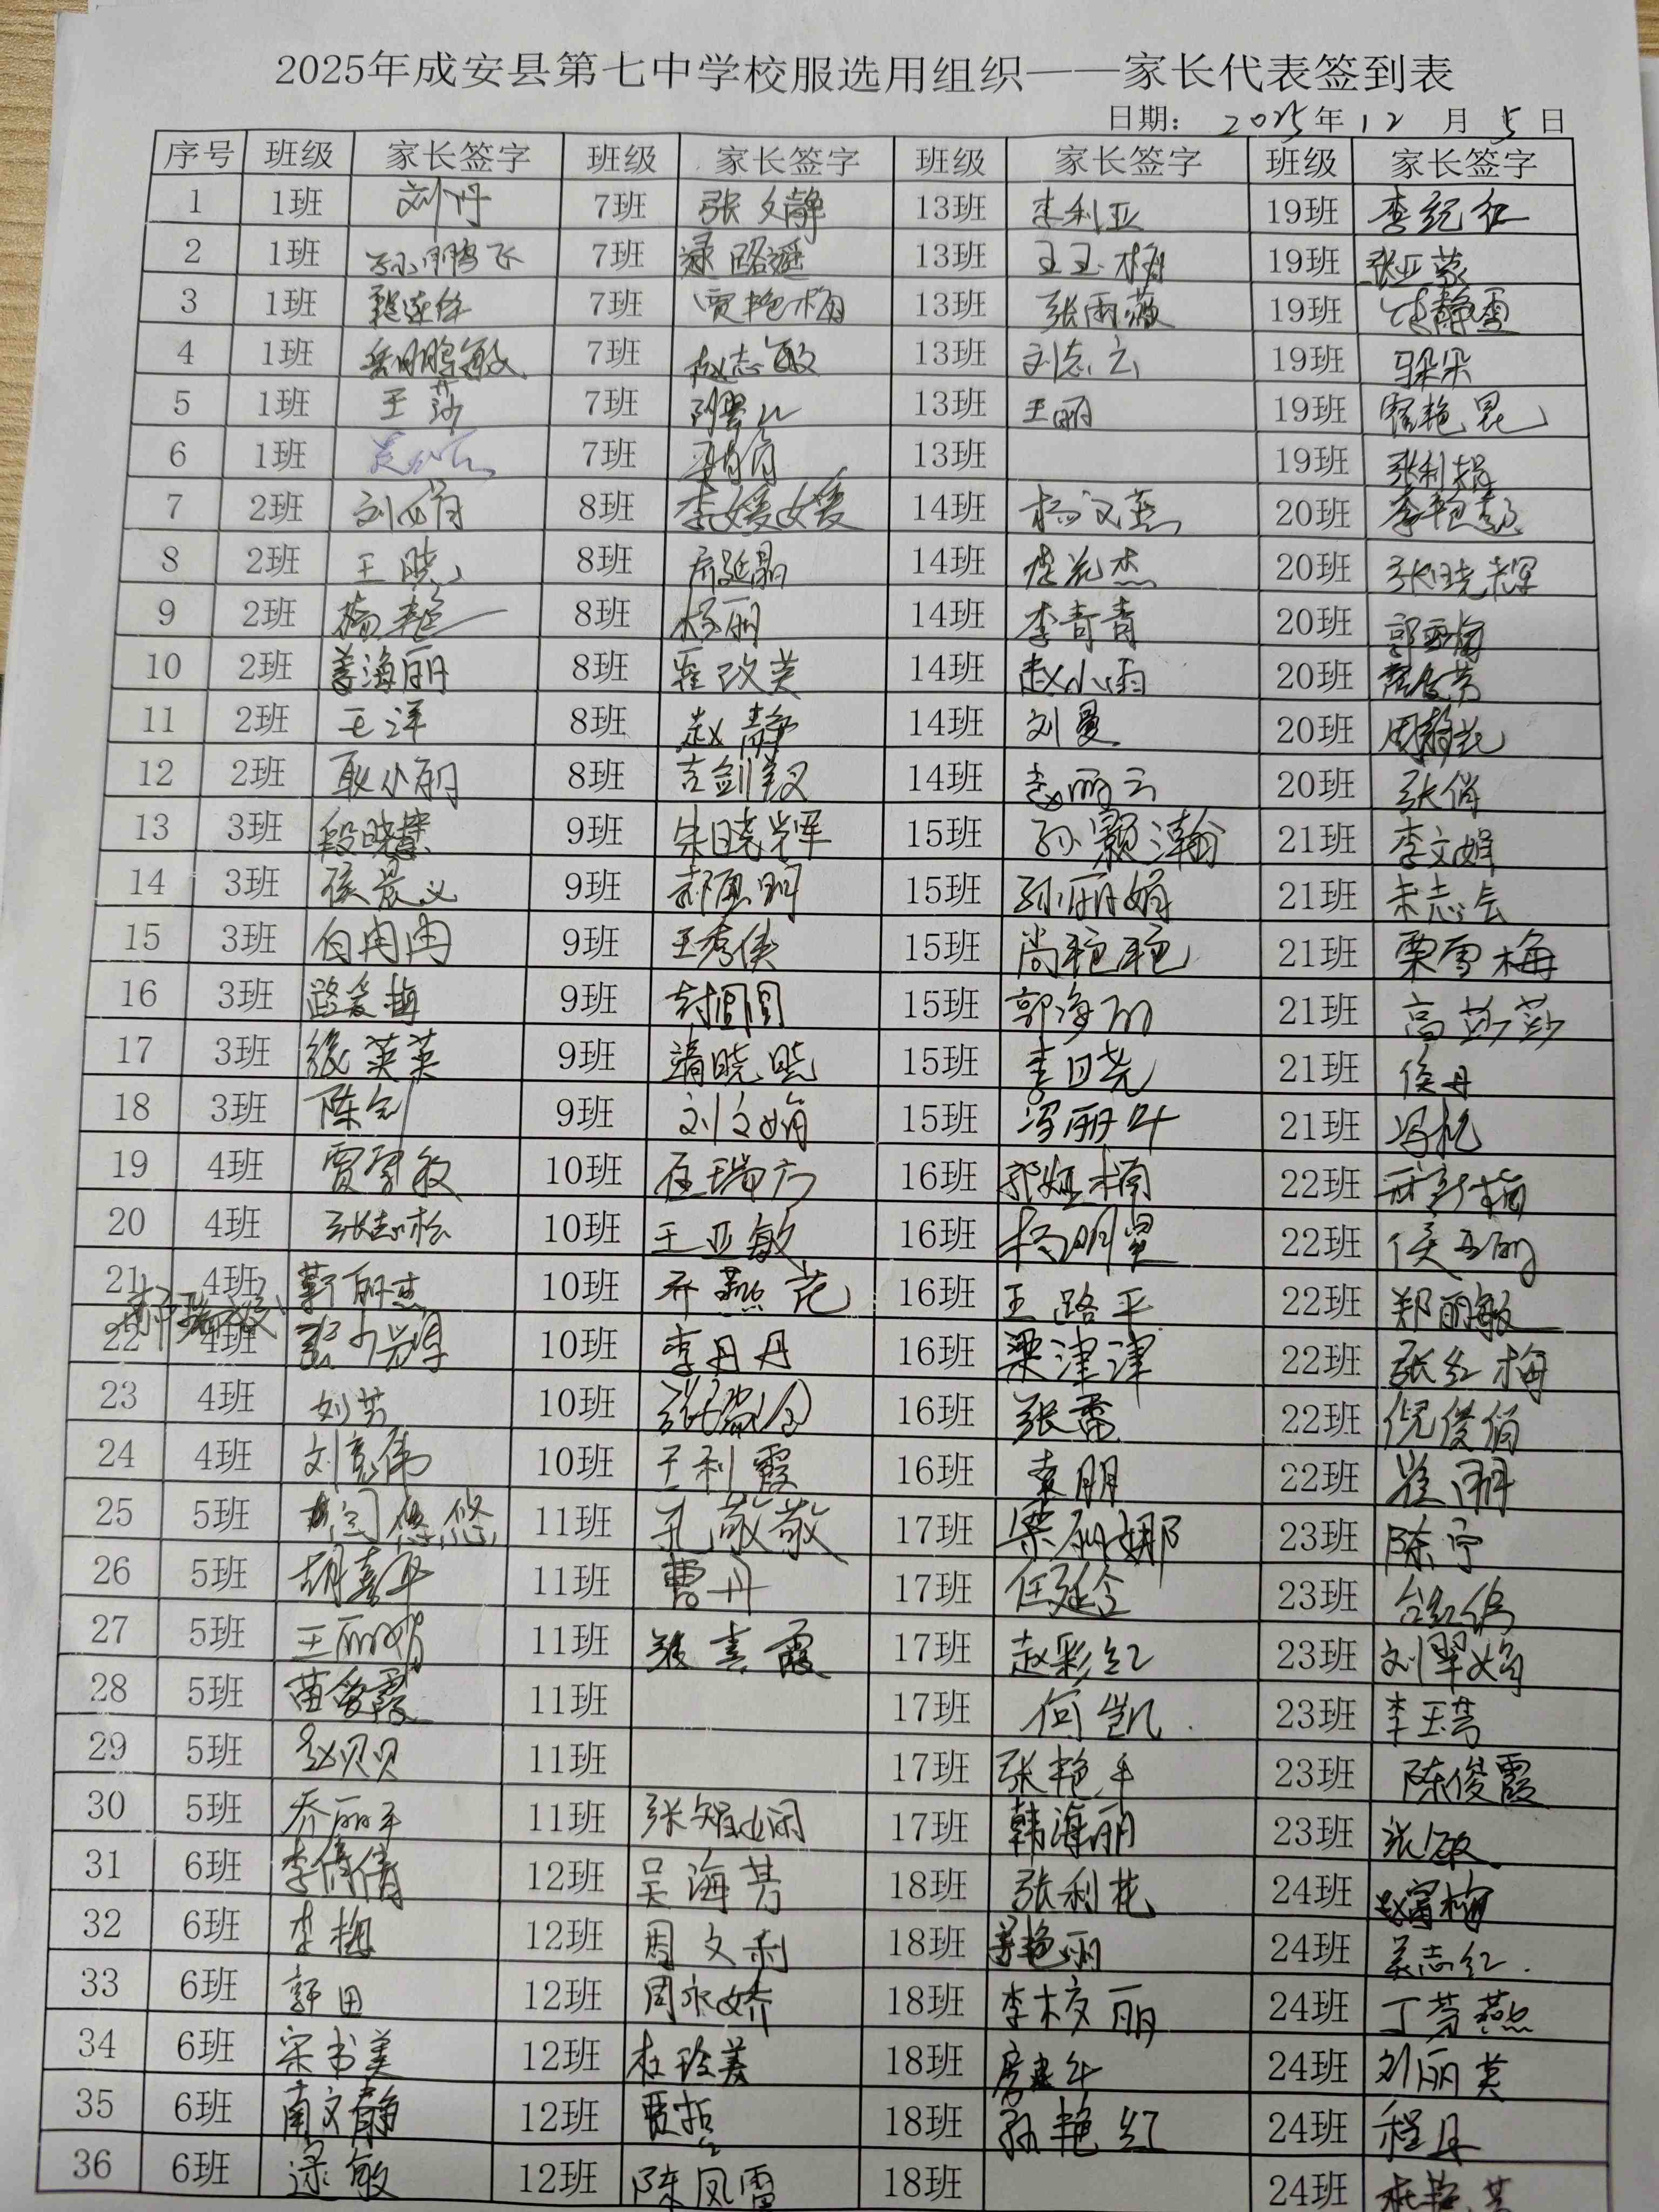 2025年成安县第七中学校服选用组织——家长代表签到表
日期: 2025年12月5日
序号 班级 家长签字 班级 家长签字 班级 家长签字 班级 家长签字
1 1班 刘丹 7班 张文静 13班 李利亚 19班 李纪红
2 1班 7班 路遥 13班 王玉梅 19班 张亚蒙
3 1班 7班 贾艳梅 13班 张雨薇 19班 静雪
4 1班 岳鹏敏 7班 赵志敏 13班 刘志云 19班 马朵朵
5 1班 王莎 7班 13班 王丽 19班
6 1班 7班 13班 19班 张利娟
7 2班 刘俏 8班 李媛媛 14班 杨文燕 20班 李艳
8 2班 王晓 8班 乔延晶 14班 李花杰 20班 张晓辉
9 2班 杨艳 8班 杨丽 14班 李青青 20班
10 2班 姜海丽 8班 霍改英 14班 赵小雨 20班
11 2班 王洋 8班 赵静 14班 刘曼 20班 周静花
12 2班 耿小丽 8班 吉剑 14班 赵丽云 20班 张俏
13 3班 段晓慧 9班 朱晓辉 15班 孙灏瀚 21班 李文娟
14 3班 侯晨义 9班 郝恩明 15班 孙丽娟 21班 朱志会
15 3班 白冉冉 9班 王秀侠 15班 尚艳艳 21班 栗雪梅
16 3班 路爱梅 9班 封圆圆 15班 郭海丽 21班 高莎莎
17 3班 英英 9班 靖晓晓 15班 李晓 21班 侯丹
18 3班 陈剑 9班 刘文娟 15班 冯丽叶 21班 冯杭
19 4班 贾雪敏 10班 石瑞广 16班 郭娅楠 22班
20 4班 张志松 10班 王亚敏 16班 杨明星 22班 侯玉明
21 4班 靳丽杰 10班 乔燕花 16班 王路平 22班 郑丽敏
22 4班 10班 李丹丹 16班 梁津津 22班 张红梅
23 4班 刘芳 10班 张瑞金 16班 张雷 22班 倪俊俏
24 4班 刘亮伟 10班 王利霞 16班 袁朋 22班 崔丽
25 5班 悠悠 11班 孔敬敬 17班 梁丽娜 23班 陈宁
26 5班 胡喜平 11班 曹丹 17班 任延令 23班
27 5班 王丽娟 11班 张素霞 17班 赵彩红 23班 刘翠娟
28 5班 苗爱霞 11班 17班 何凯 23班 李玉芳
29 5班 赵贝贝 11班 17班 张艳平 23班 陈俊霞
30 5班 乔丽平 11班 张智娴 17班 韩海丽 23班 张敏
31 6班 李倩倩 12班 吴海芳 18班 张利花 24班 赵富梅
32 6班 李梅 12班 周文利 18班 姜艳丽 24班 吴志红
33 6班 郭田 12班 周永娇 18班 李校丽 24班 丁芳燕
34 6班 宋书美 12班 杜玲美 18班 24班 刘丽英
35 6班 南文静 12班 贾哲 18班 孙艳红 24班 程丹
36 6班 逯敏 12班 陈凤雷 18班 24班